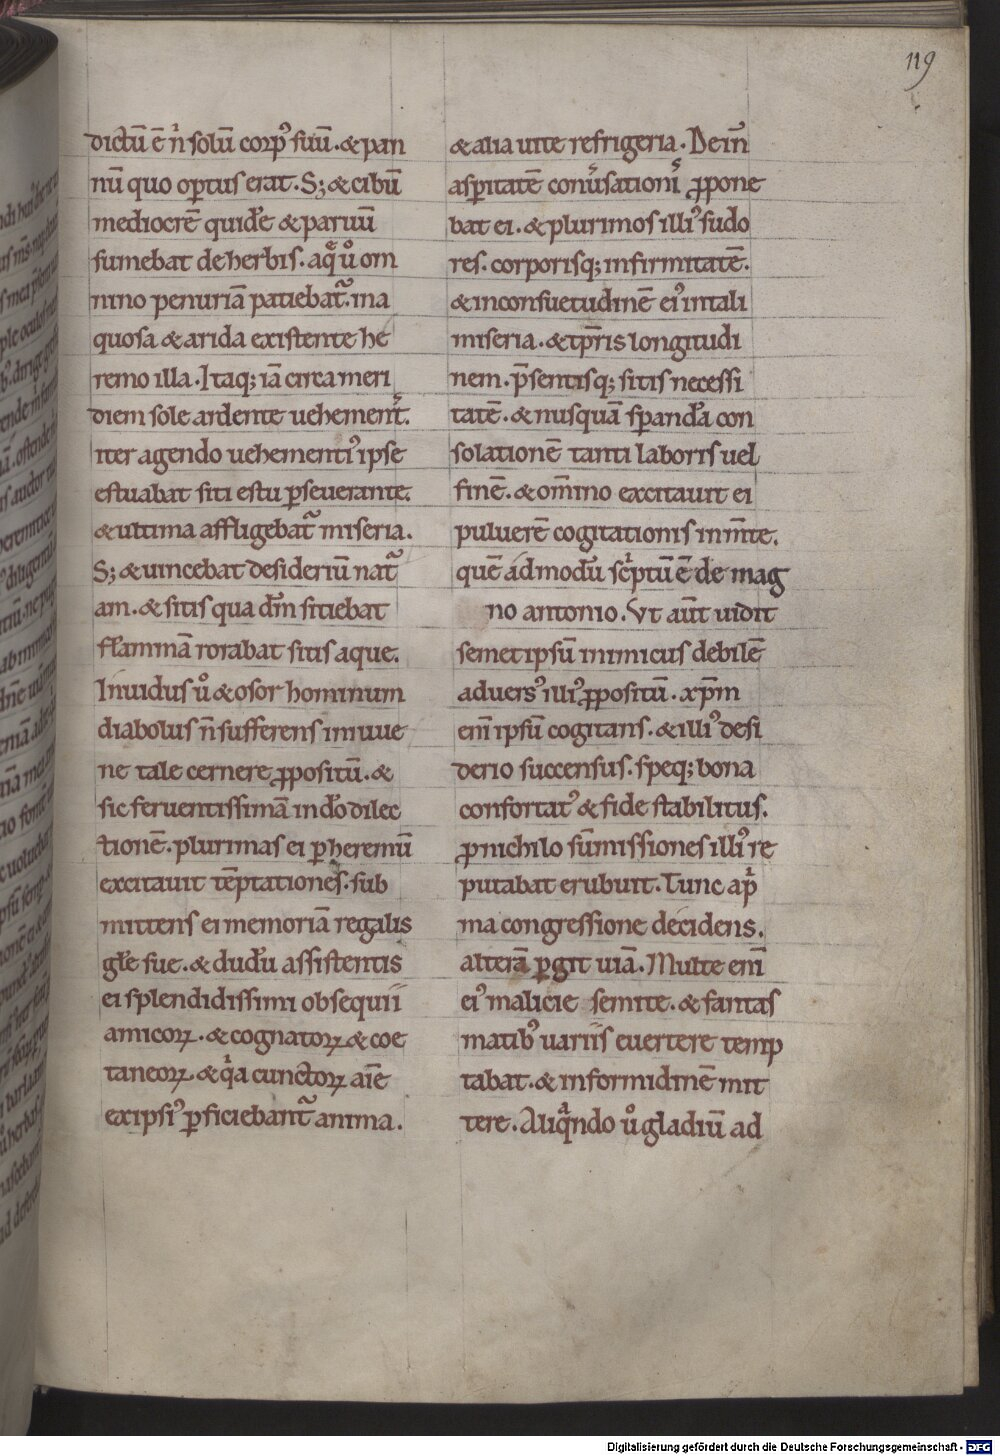 119
dictū ē n̄ solū corp᾿ suū. & pan
nū quo op̄tus erat. S; & cibū
mediocrē quidē & paruū
sumebat de herbis. aq̄ u᷈o om
nino penuriā patiebat᷑. ina
quosa & arida existente he
remo illa. Itaq; iā circa meri
diem sole ardente uehemen᷑t.
iter agendo uehementi᾿ ipse
estuabat siti estu p̱seuerante.
& ultima affligebat᷑ miseria.
S; & uincebat desideriū nat᷑
am. & sitis qua dm̄ sitiebat
flammā rorabat sitis aque.
Inuidus uͦ & osor hominum
diabolus n̄ sufferens in iuue
ne tale cernere ꝓpositū. &
sic feruentissimā in do̅ dilec
tionē. plurimas ei p̱ heremū
excitauit tēptationes. sub
mittens ei memoriā regalis
gl̄e sue. & dudū assistentis
ei splendidissimi obsequii
amicoꝝ. & cognatoꝝ & coe
taneoꝝ. & qͥa cunctoꝝ aīe
ex ipsi᾿ p̱ficiebant᷑ anima.
& alia uite refrigeria. Dein̄
asp̱itatē conu̓sationi᷑ ꝓpone
bat ei. & plurimos illi᾿ sudo
res. corporisq; infirmitatē.
& inconsuetudinē ei᾿ in tali
miseria. & tp̄ris longitudi
nem. p̄sentisq; sitis necessi
tatē. & nusquā sp̱andā con
solationē tanti laboris uel
finē. & om̄ino excitauit ei
puluerē cogitationis in m̄te.
quē ad modū sc͛ptū ē de mag
no antonio. Vt aūt uidit
semet ipsū inimicus debilē
aduers᾿ illi᾿ ꝓpositū. xp̄m
enī ipsū cogitans. & illi᾿ desi
derio succensus. speq; bona
confortat᾿ & fide stabilitus.
ꝓ nichilo sūmissiones illi᾿ re
putabat erubuit. Tunc a pͥ
ma congressione decidens.
alterā p̱git uiā. Multe enī
ei᾿ malicie semite. & fantas
matib᾿ uariis euertere temp
tabat. & in formidinē mit
tere. Aliqᷓndo uͦ gladiū ad
Digitalisierung gefördert durch die Deutsche Forschungsgemeinschaft - DFG